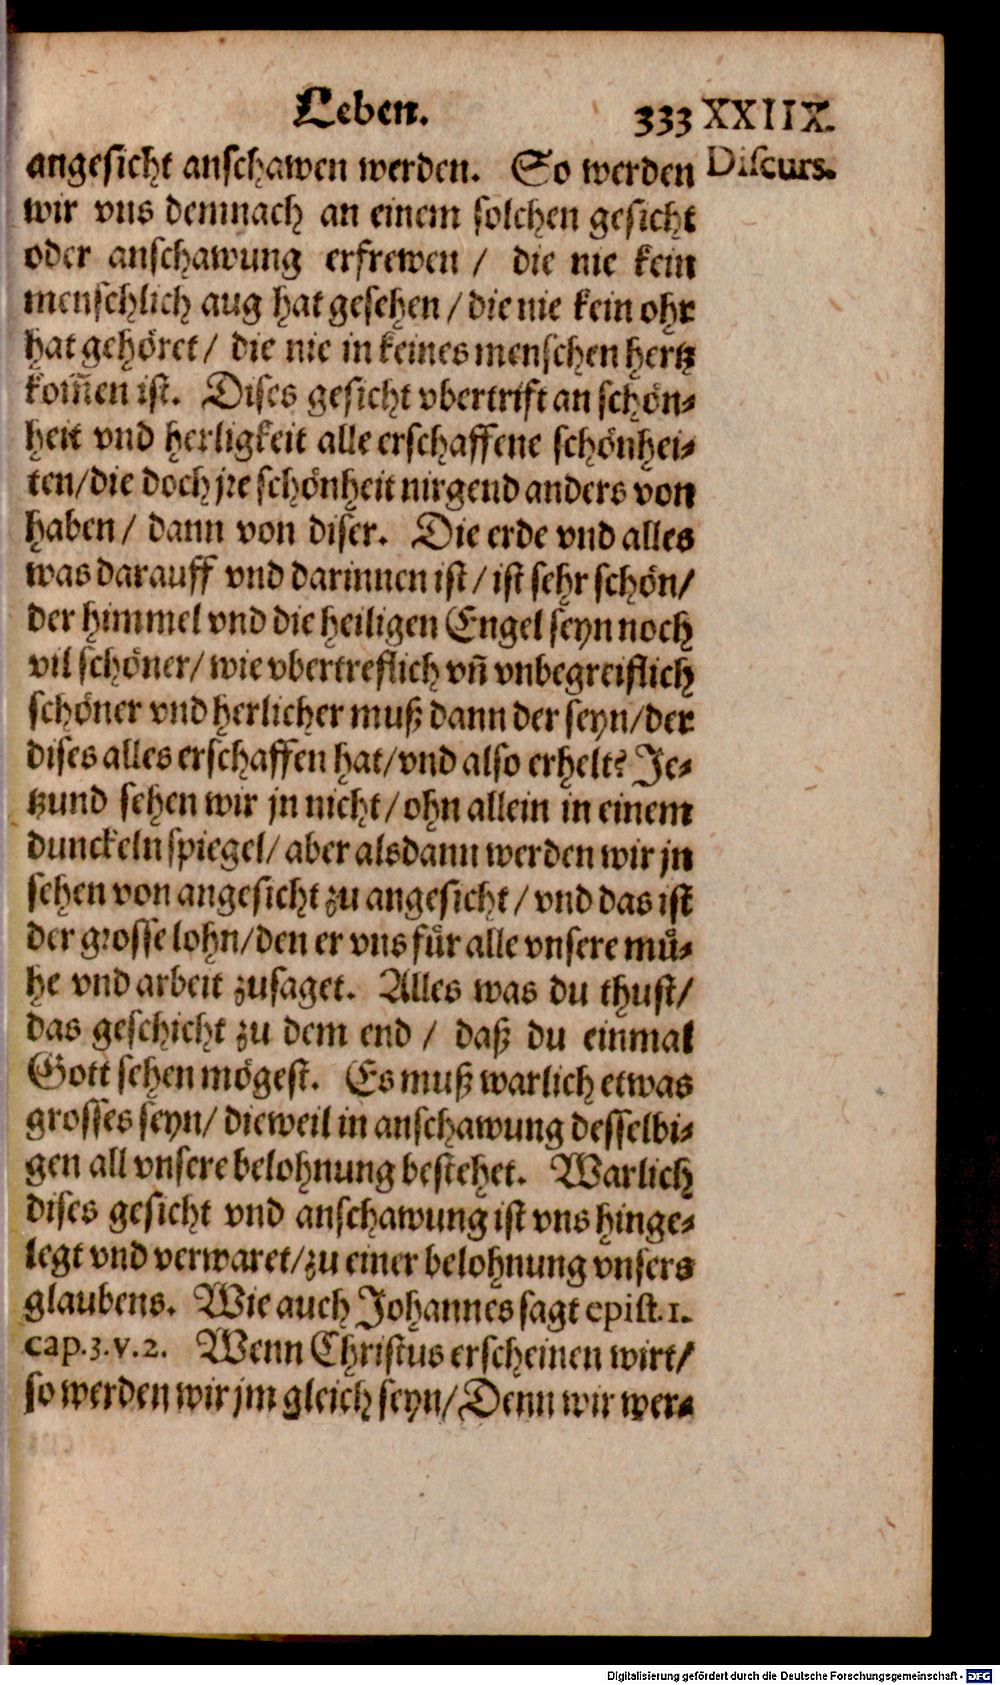 Leben. 333 XXIIX.
angesicht anschawen werden. So werden Discurs.
wir vns demnach an einem solchen gesicht
oder anschawung erfrewen / die nie kein
menschlich aug hat gesehen / die nie kein ohr
hat gehöret / die nie in keines menschen hertz
kom̃en ist. Dises gesicht vbertrift an schön-
heit vnd herligkeit alle erschaffene schönhei-
ten/die doch jre schönheit nirgend anders von
haben / dann von diser. Die erde vnd alles
was darauff vnd darinnen ist / ist sehr schön/
der himmel vnd die heiligen Engel seyn noch
vil schöner/ wie vbertreflich vñ vnbegreiflich
schöner vnd herlicher muß dann der seyn/der
dises alles erschaffen hat/vnd also erhelt? Je-
tzund sehen wir jn nicht / ohn allein in einem
dunckeln spiegel/ aber alsdann werden wir jn
sehen von angesicht zu angesicht / vnd das ist
der grosse lohn/den er vns für alle vnsere mü-
he vnd arbeit zusaget. Alles was du thust/
das geschicht zu dem end / daß du einmal
Gott sehen mögest. Es muß warlich etwas
grosses seyn/ dieweil in anschawung desselbi-
gen all vnsere belohnung bestehet. Warlich
dises gesicht vnd anschawung ist vns hinge-
legt vnd verwaret/zu einer belohnung vnsers
glaubens. Wie auch Johannes sagt epist.1.
cap.3.v.2. Wenn Christus erscheinen wirt/
so werden wir jm gleich seyn/Denn wir wer-
Digitalisierung gefördert durch die Deutsche Forschungsgemeinschaft - DFG